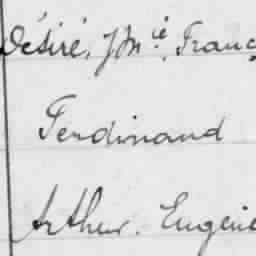 Désiré, J M ie, Franç
Ferdinand
Arthur. Eugène